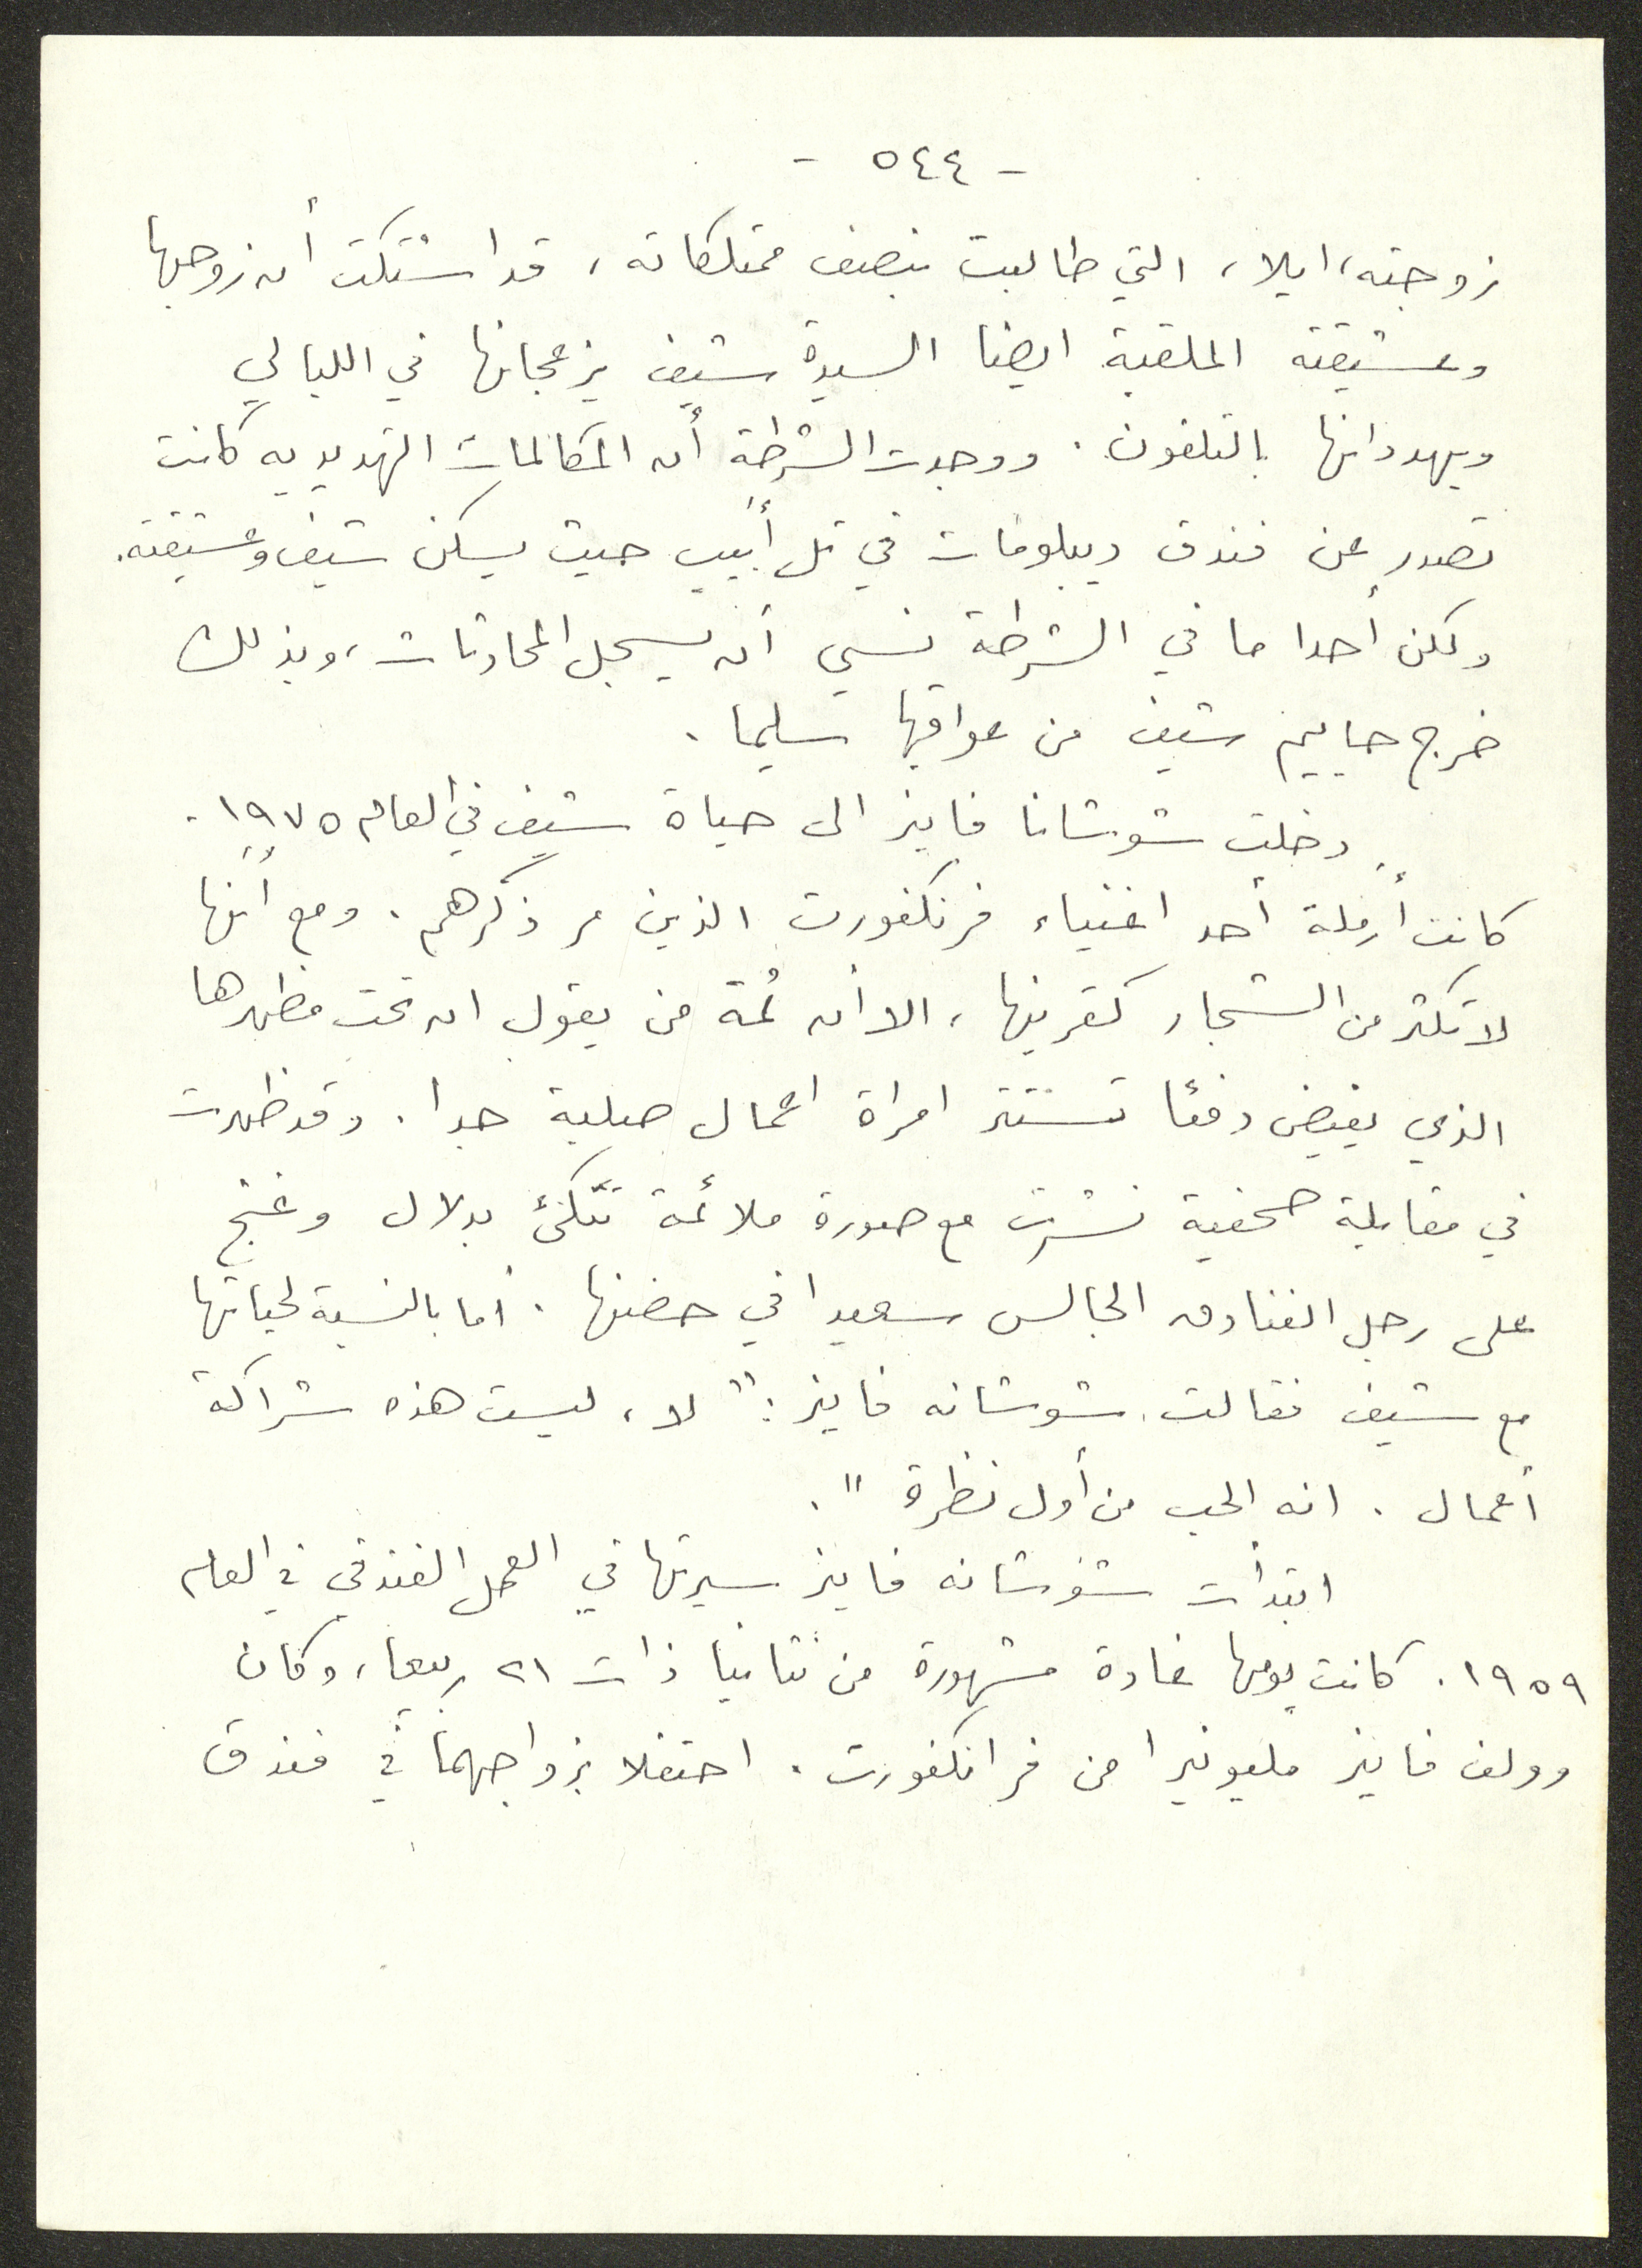 - ٥٤٤ -
زوجته، ايلا، التي طالبت بنصف ممتلكاته، قد اشتكت أن زوجها
وعشيقته الملقبة ايضا السيدة شيف يزعجانها في الليالي
ويهددانها بالتلفون. ووجدت الشرطة أن المكالمات التهديديه كانت
تصدر عن فندق ديبلومات في تل أبيب حيث يسكن شيف وعشيقته.
ولكن أحدا ما في الشرطة نسي أن يسجل المحادثات، وبذلك
خرج حاييم شيف من عواقبها سليما.
دخلت شوشانا فاينر الى حياة شيف في العام ١٩٧٥.
كانت أرملة أحد اغنياء فرنكفورت الذين مر ذكرهم. ومع أنها
لا تكثر من الشجار كقرينها، الا أن ثمة من يقول ان تحت مظهرها
الذي يفيض دفئا تستتر امراة اعمال صلبة جدا. وقد ظهرت
في مقابلة صحفية نشرت مع صورة ملائمة تتكئ بدلال وغنج
على رجل الفنادق الجالس سعيدا في حضنها. أما بالنسبة لحياتها
مع شيف فقالت شوشانه فاينر: "لا، ليست هذه شراكة
أعمال. انه الحب من أول نظرة".
ابتدأت شوشانه فاينر سيرتها في العمل الفندقي في العام
١٩٥٩. كانت يومها غادة مشهورة من نتانيا ذات ٢١ ربيعا، وكان
وولف فاينر مليونيرا من فرانكفورت. احتفلا بزواجهما في فندق